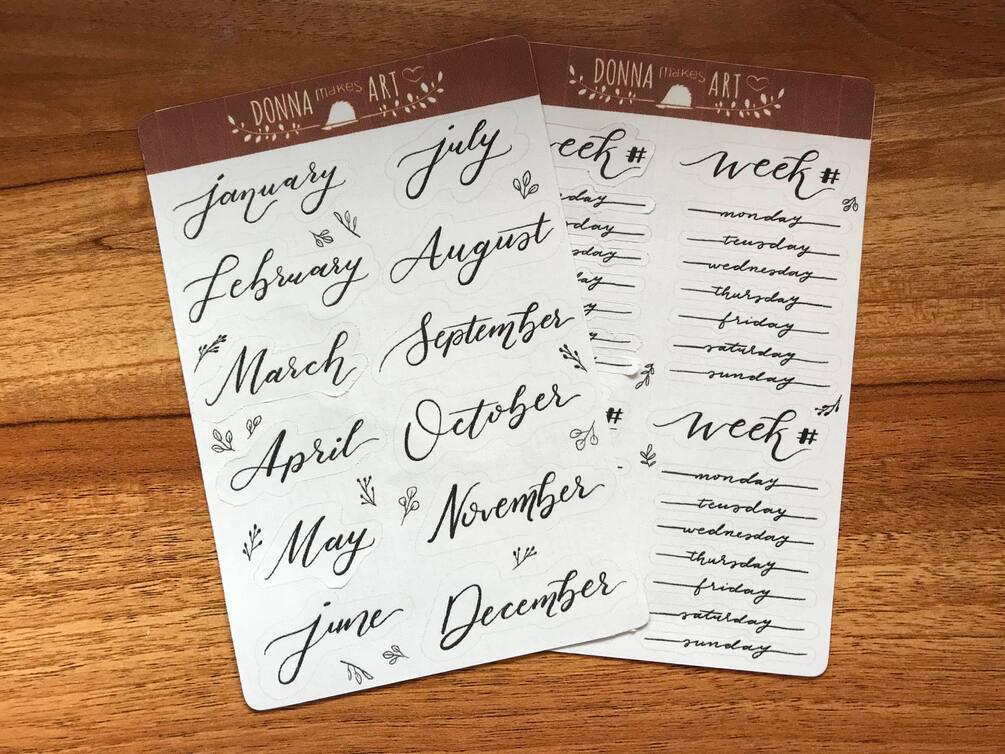 DONNA makes ART
january
February
March
April
May
june
july
August
September
October
November
December
DONNA makes ART
week #
monday
teusday
wednesday
thursday
friday
saturday
sunday
week #
monday
teusday
wednesday
thursday
friday
saturday
sunday
#